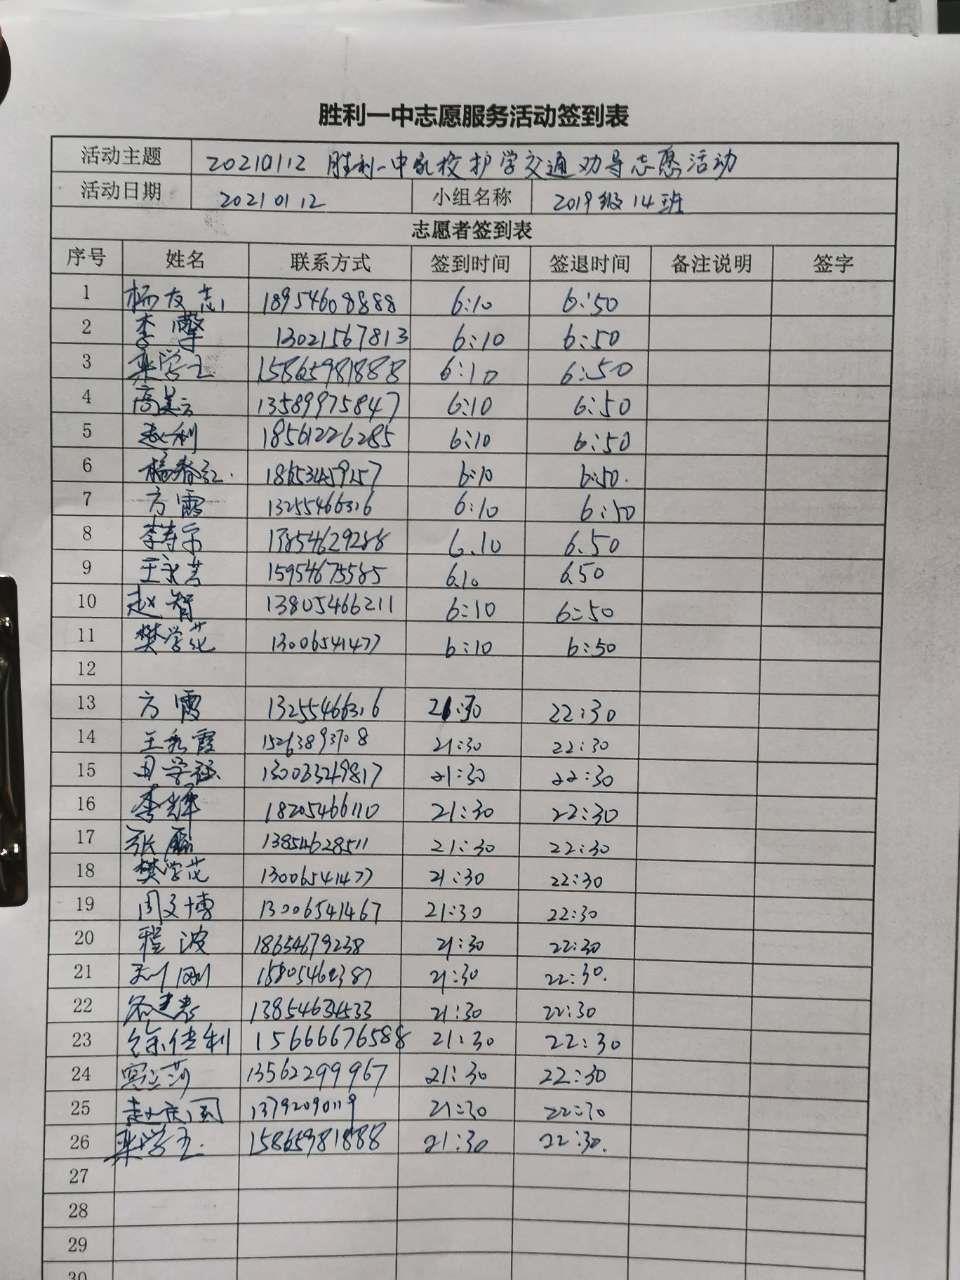 胜利一中志愿服务活动签到表
活动主题 20210112 胜利一中家校护学交通劝导志愿活动
活动日期 20210112 小组名称 2019级14班
志愿者签到表
序号 姓名 联系方式 签到时间 签退时间 备注说明 签字
1 杨友志 18954608888 6:10 6:50
2 李擎 13021567813 6:10 6:50
3 栾学玉 15865981888 6:10 6:50
4 高美云 13589975847 6:10 6:50
5 赵利 18561226285 6:10 6:50
6 杨春红. 18653459157 6:10 6:50.
7 方霞 13255466316 6:10 6:50
8 李寿宗 6.10 6.50
9 15954675585 6.10 6.50
10 赵智 13805466211 6:10 6:50
11 樊学花 13006541477 6:10 6:50
12
13 方霞 13255466316 21:30 22:30
14 王秀霞 15263893708 21:30 22:30
15 田学强 13003349817 21:30 22:30
16 李辉 18205466110 21:30 22:30
17 张磊 13854628511 21:30 22:30
18 樊学花 13006541477 21:30 22:30
19 周文博 13006541467 21:30 22:30
20 程波 18654679238 21:30 22:30
21 刘刚 21:30 22:30.
22 21:30 22:30
23 徐传利 15666676588 21:30 22:30
24 13562299967 21:30 22:30
25 赵庆国 13792090119 21:30 22:30
26 栾学玉. 15865981888 21:30 22:30.
27
28
29
30